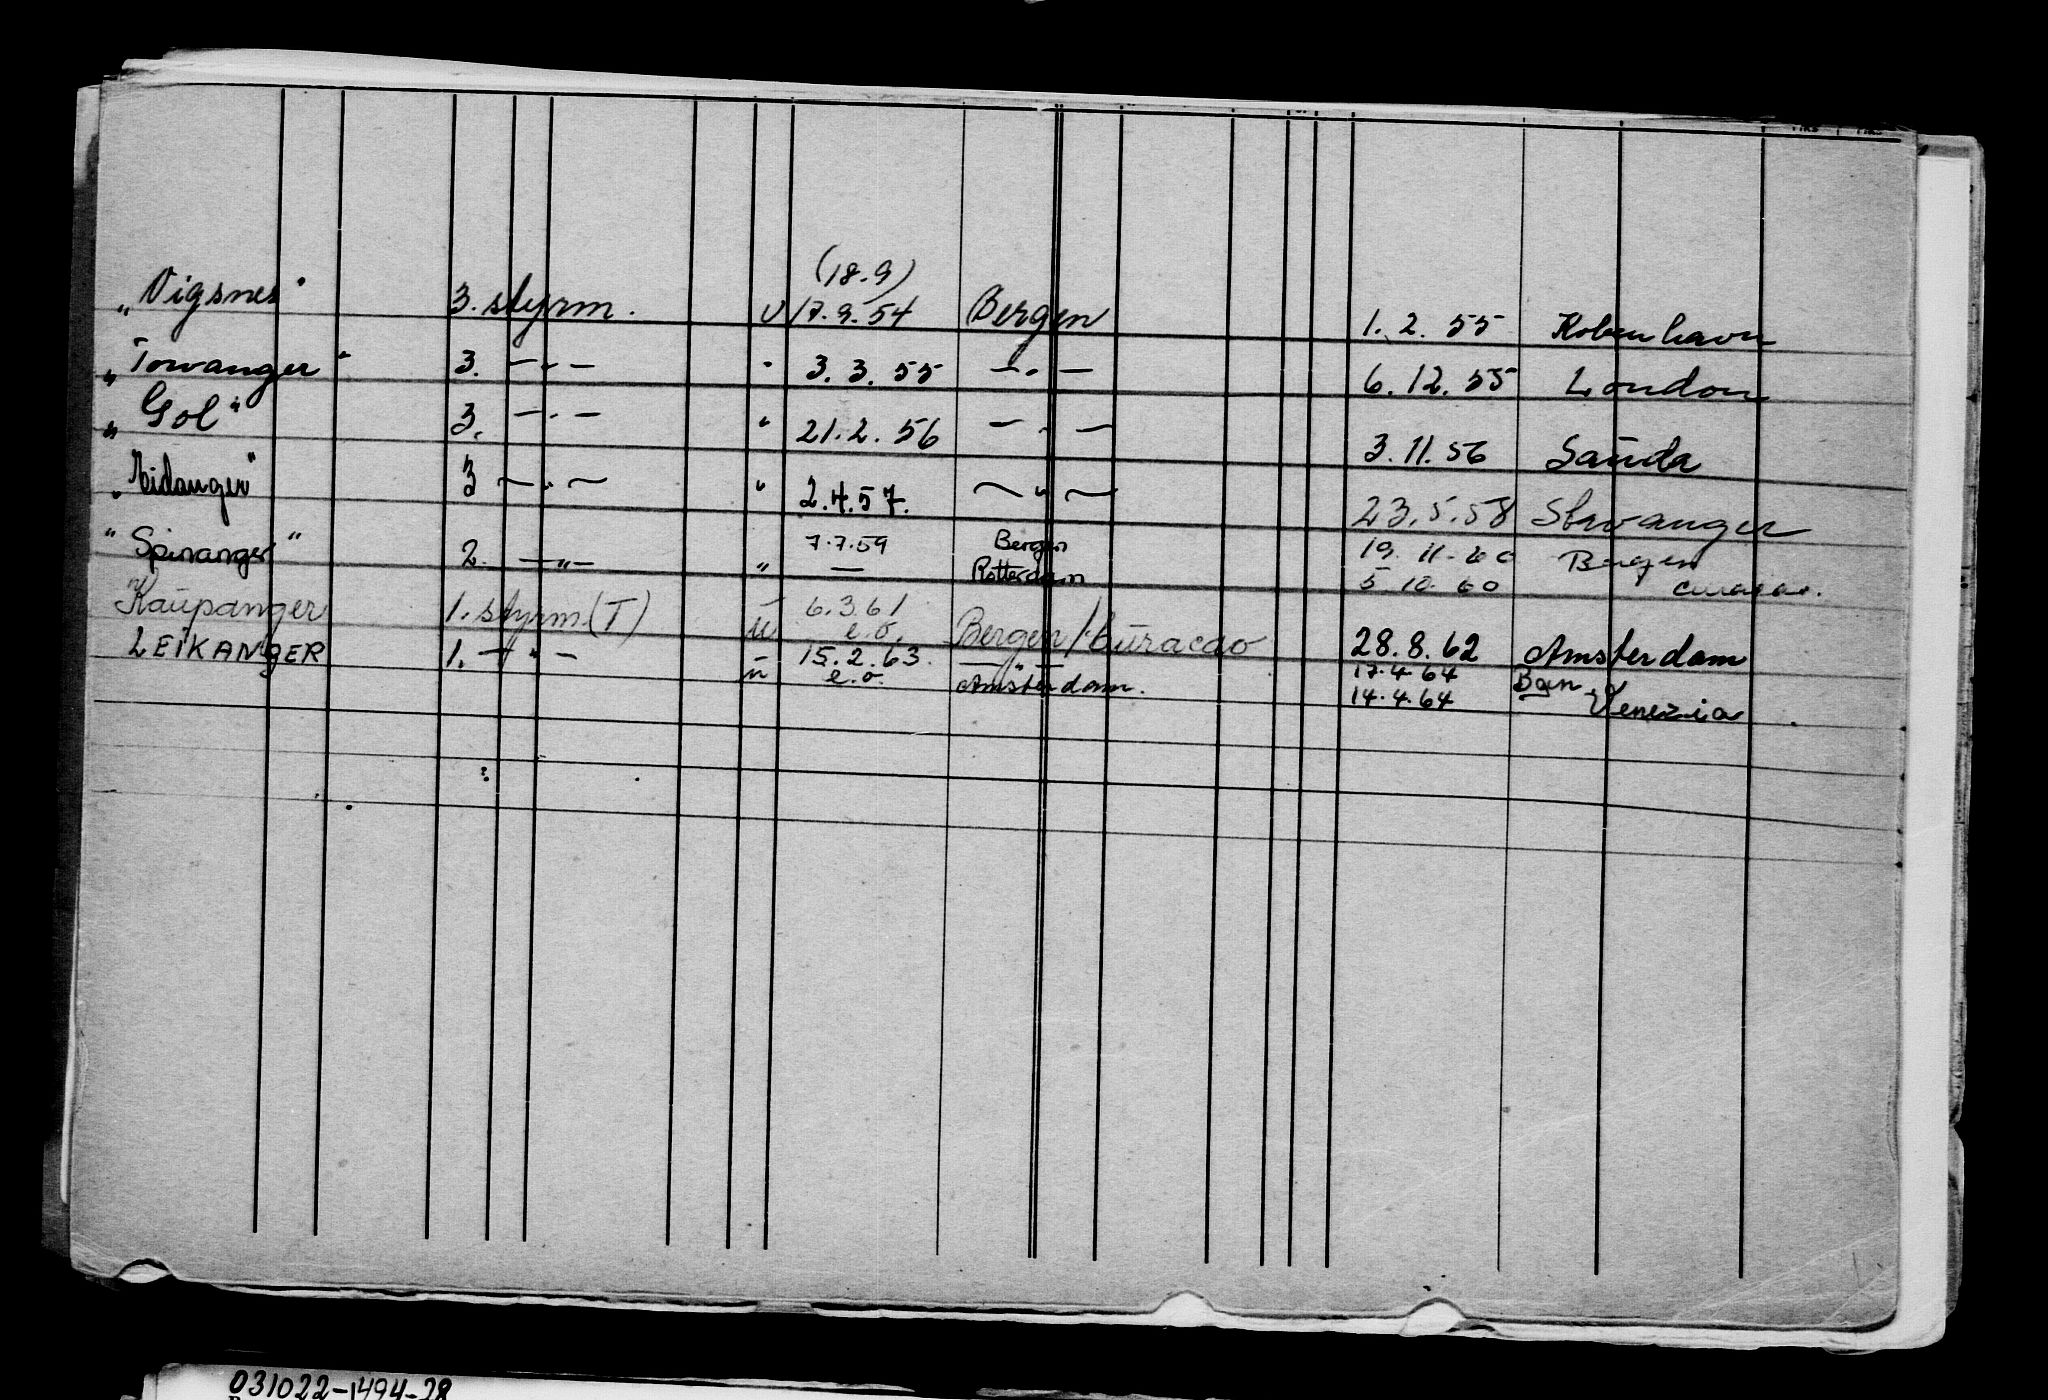 (18.9)
„Vigsnes" 3. styrm. u 17.9.54 Bergen 1.2.55 Kobenhavn
„Torvanger" 3. —·— " 3.3.55 —·— 6.12.55 London
„Gol" 3. —·— " 21.2.56 —·— 3.11.56 Sauda
„Eidanger" 3 —"— " 2.4.57. —"— 23.5.58 Stavanger
"Spinanger" 2. —"— " 7.7.59 Bergen 19.11.60 Bergen
— Rotterdam 5.10.60 Curacao.
Kaupanger 1. styrm (T) — 6.3.61
u e.o. Bergen/Curacao 28.8.62 Amsterdam
LEIKANGER 1. —"— — 15.2.63. —"— 17.4.64 Bgn.
u e.o. Amsterdam. 14.4.64 Venezia.
031022-1494-28